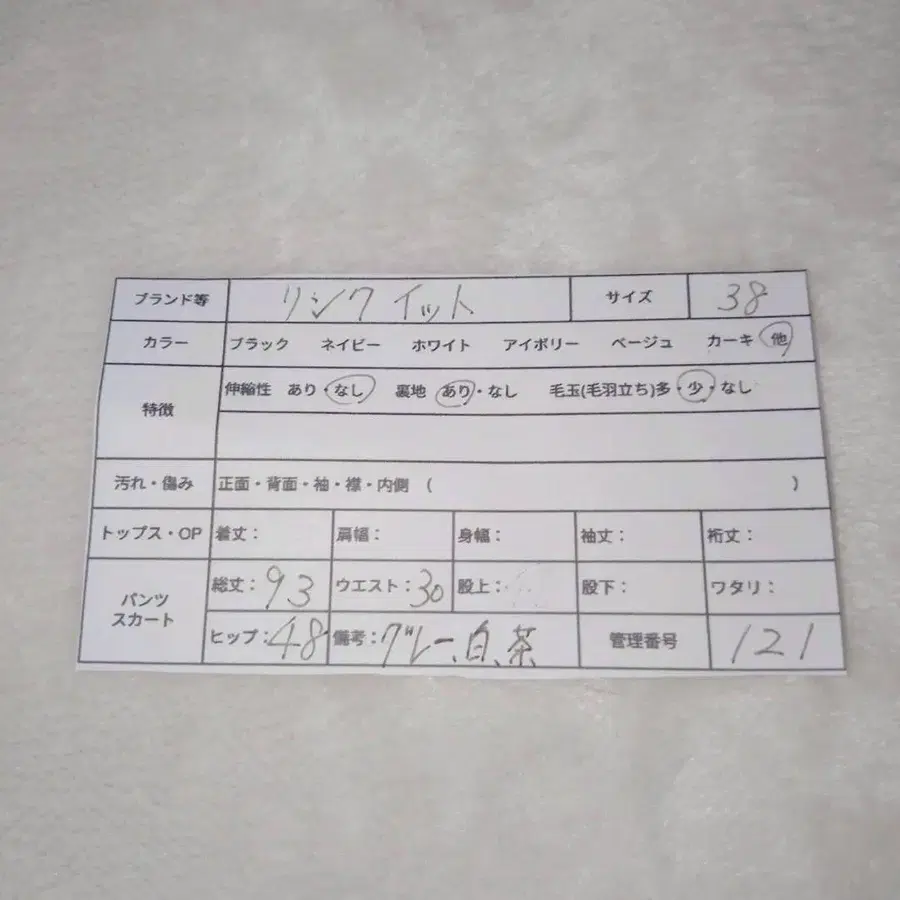 ブランド等 リンクイット サイズ 38
カラー ブラック ネイビー ホワイト アイボリー ベージュ カーキ 他
特徴 伸縮性 あり・なし 裏地 あり・なし 毛玉(毛羽立ち)多・少・なし
汚れ・傷み 正面・背面・袖・襟・内側 ( )
トップス・OP 着丈： 肩幅： 身幅： 袖丈： 裄丈：
パンツ スカート 総丈：93 ウエスト：30 股上： 股下： ワタリ：
ヒップ：48 備考：グレー、白、茶 管理番号 121